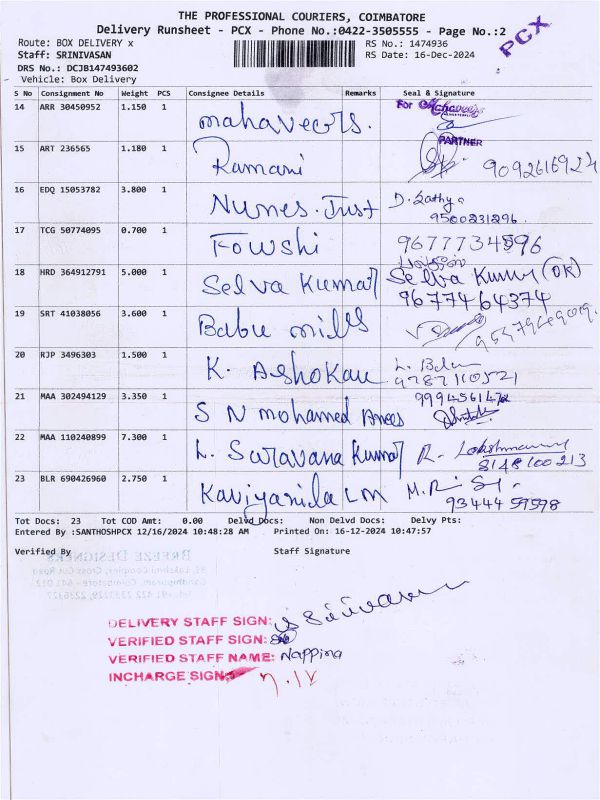 THE PROFESSIONAL COURIERS, COIMBATORE
Delivery Runsheet - PCX - Phone No.:0422-3505555 - Page No.:2
Route: BOX DELIVERY x
RS No.: 1474936
Staff: SRINIVASAN
RS Date: 16-Dec-2024
PCX
DRS No.: DCJB147493602
Vehicle: Box Delivery
S No Consignment No Weight PCS Consignee Details Remarks Seal & Signature
14 ARR 30450952 1.150 1 For Mahaveers
PARTNER
15 ART 236565 1.180 1 Ramani
16 EDQ 15053782 3.800 1 Nunes. Trust D. Sathya
9500231296
17 TCG 50774095 0.700 1 Fowshi
18 HRD 364912791 5.000 1 Selva Kumar Selva Kumar
9677464374
19 SRT 41038056 3.600 1 Babu mills
20 RJP 3496303 1.500 1 K. Ashokan
9787110521
21 MAA 302494129 3.350 1 S N mohamed Anees
22 MAA 110240899 7.300 1 L. Saravana Kumar R.
8148100213
23 BLR 690426960 2.750 1
9344459598
Tot Docs: 23 Tot COD Amt: 0.00 Delvd Docs: Non Delvd Docs: Delvy Pts:
Entered By :SANTHOSHPCX 12/16/2024 10:48:28 AM Printed On: 16-12-2024 10:47:57
Verified By Staff Signature
BREEZE DESIGNERS
DELIVERY STAFF SIGN:
VERIFIED STAFF SIGN:
VERIFIED STAFF NAME: Nappina
INCHARGE SIGN: